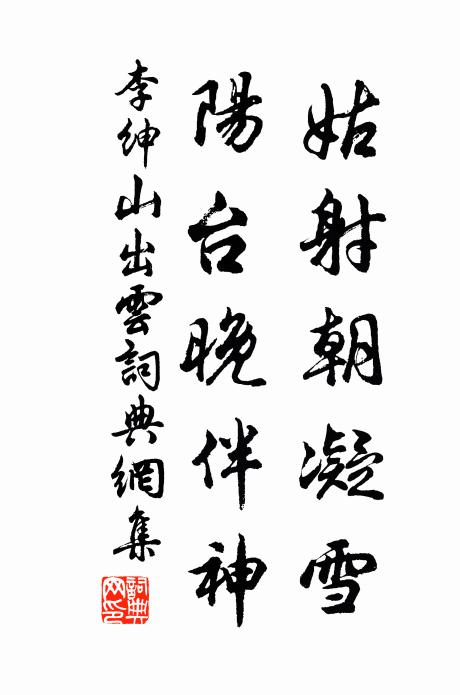 姑射朝凝雪
陽台晚伴神
李紳山出雲詞典網集
詞典網印